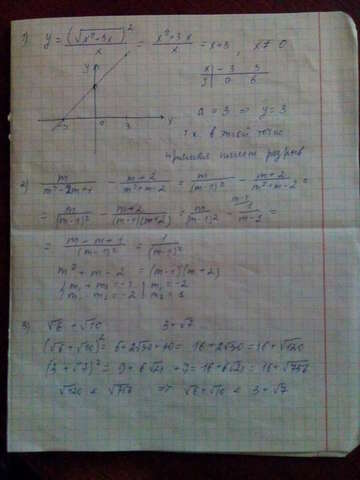 1) y = (√(x²+3x))² / x = (x²+3x) / x = x+3, x ≠ 0
y
x | -3 | 3
y | 0 | 6
-3 0 3 x
a = 3 => y = 3
т.к. в этой точке
прямая имеет разрыв
2) m/(m²-2m+1) - (m+2)/(m²+m-2) = m/(m-1)² - (m+2)/(m²+m-2) =
= m/(m-1)² - (m+2)/((m-1)(m+2)) = m/(m-1)² - 1/(m-1) =
= (m-m+1)/(m-1)² = 1/(m-1)²
m² + m - 2 = (m-1)(m+2)
{ m₁ + m₂ = -1 | m₁ = -2
m₁ · m₂ = -2 | m₂ = 1
3) √6 + √10 3 + √7
(√6 + √10)² = 6 + 2√60 + 10 = 16 + 2√30 = 16 + √120
(3 + √7)² = 9 + 6√7 + 7 = 16 + 6√21 = 16 + √756
√120 < √756 => √6 + √10 < 3 + √7